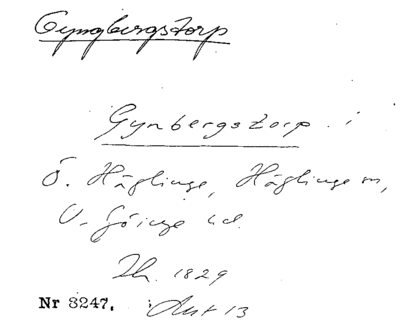 Gyngbergstorp
Gynbergstorp. i
Ö. Häglinge, Häglinge sn,
V. Göinge hd.
Th. 1829
Nr 3247. Avst 13